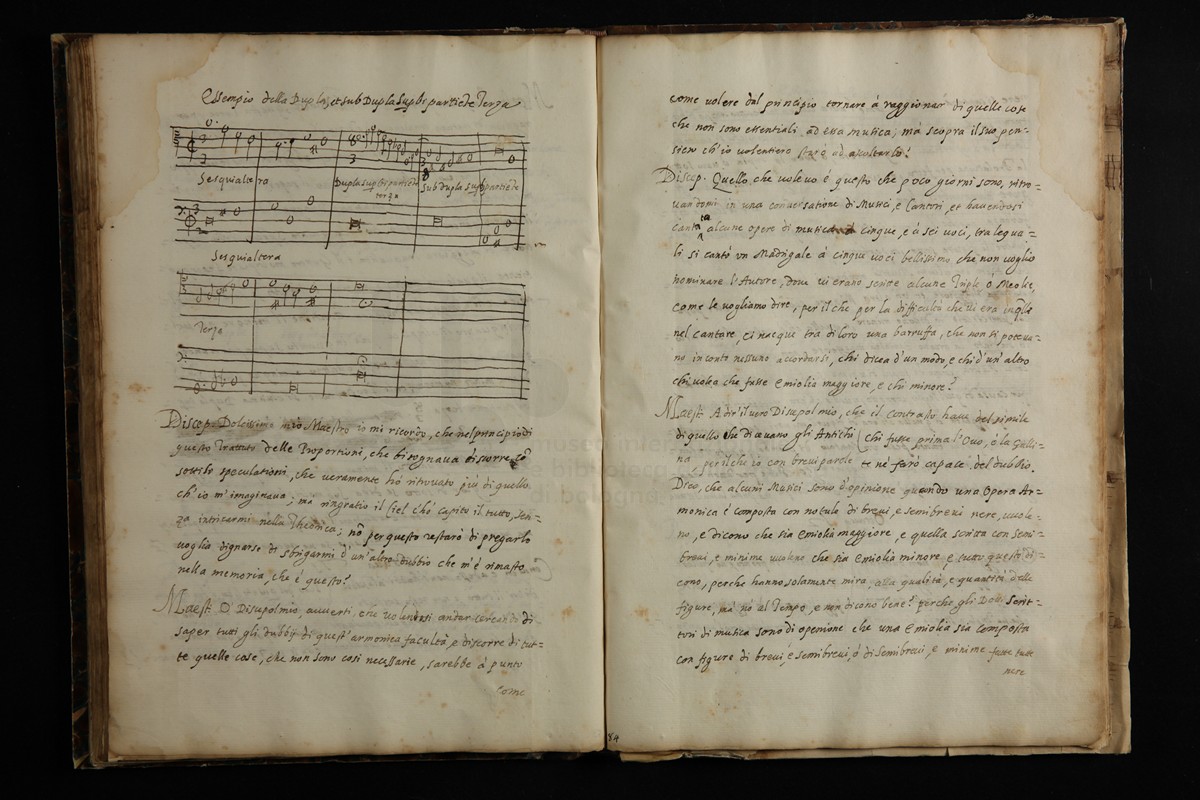 Essempio della Dupla, et sub Dupla supbipartiẽte Terza
Sesquialtera Dupla supbipartiẽte terza Sub dupla supbipartiẽte
Sesquialtera
Terza
Discep. Dolcissimo mio Maestro io mi ricordo, che nel principio di
questo Trattato delle Proportioni, che bisognava discorre cõ
sottile speculationi, che veramente hò ritrovato più di quello
ch'io m'imaginava; ma ringratio il Ciel c'hò capito il tutto, sen=
za intricarmi nella Theorica; nõ per questo restarò di pregarlo
voglia dignarse di sbrigarmi d'un'altro dubbio che m'è rimasto
nella memoria, che è questo?
Maest. O Disepol mio, avverti che volendosi andar cercando di
saper tutti gli dubbij di quest'armonica facultà, e discorre di tut=
te quelle cose, che non sono così necessarie, sarebbe à punto
come
come volere dal principio tornare à raggionar di quelle cose
che non sono essentiali ad essa musica; mà scopra il suo pen=
siero ch'io volentiero starò ad ascoltarlo!
Discep. Quello che volevo è questo che poco giorni sono, ritro=
vandomi in una conversatione di Musici, e Cantori, et havendosi
cantata alcune opere di musica cinque, e à sei voci, tra le qua=
li si cantò un Madrigale à cinque voci bellissimo che non voglio
nominare l'Autore, dove vi erano scritte alcune Triple ò Meolie,
come le vogliamo dire, per il che per la difficultà che vi era in q̃lle
nel cantare, ci nacque tra di loro una barruffa, che non si poteva=
no in conto nessuno accordarsi, chi dicea d'un modo, e chi d'un'altro
chi volea che fusse emiolia maggiore, e chi minore?
Maest. A dir'il vero Disepol mio, che il contrasto have del simile
di quello che dicevano gli Antichi (chi fusse prima l'Ovo, è la Galli=
na per il che io con brevi parole te ne farò capace del dubbio.
Dico, che alcuni Musici sono d'opinione quando una Opera Ar=
monica è composta con notula di brevi, e semibrevi nere, vuole=
no, e dicono che sia emiolia maggiore, e quella scritta con semi=
brevi, e minime vuolono che sia emiolia minore e tutto questo di=
cono, perche hanno solamente mira alla qualità, e quantità delle
figure, mà nò al Tempo, e non dicono bene? perche gli Dotti Scrit=
tori di musica sono di openione che una emiolia sia composta
con figure di brevi, e semibrevi, ò di semibrevi, e minime fatte tutte
nere
84